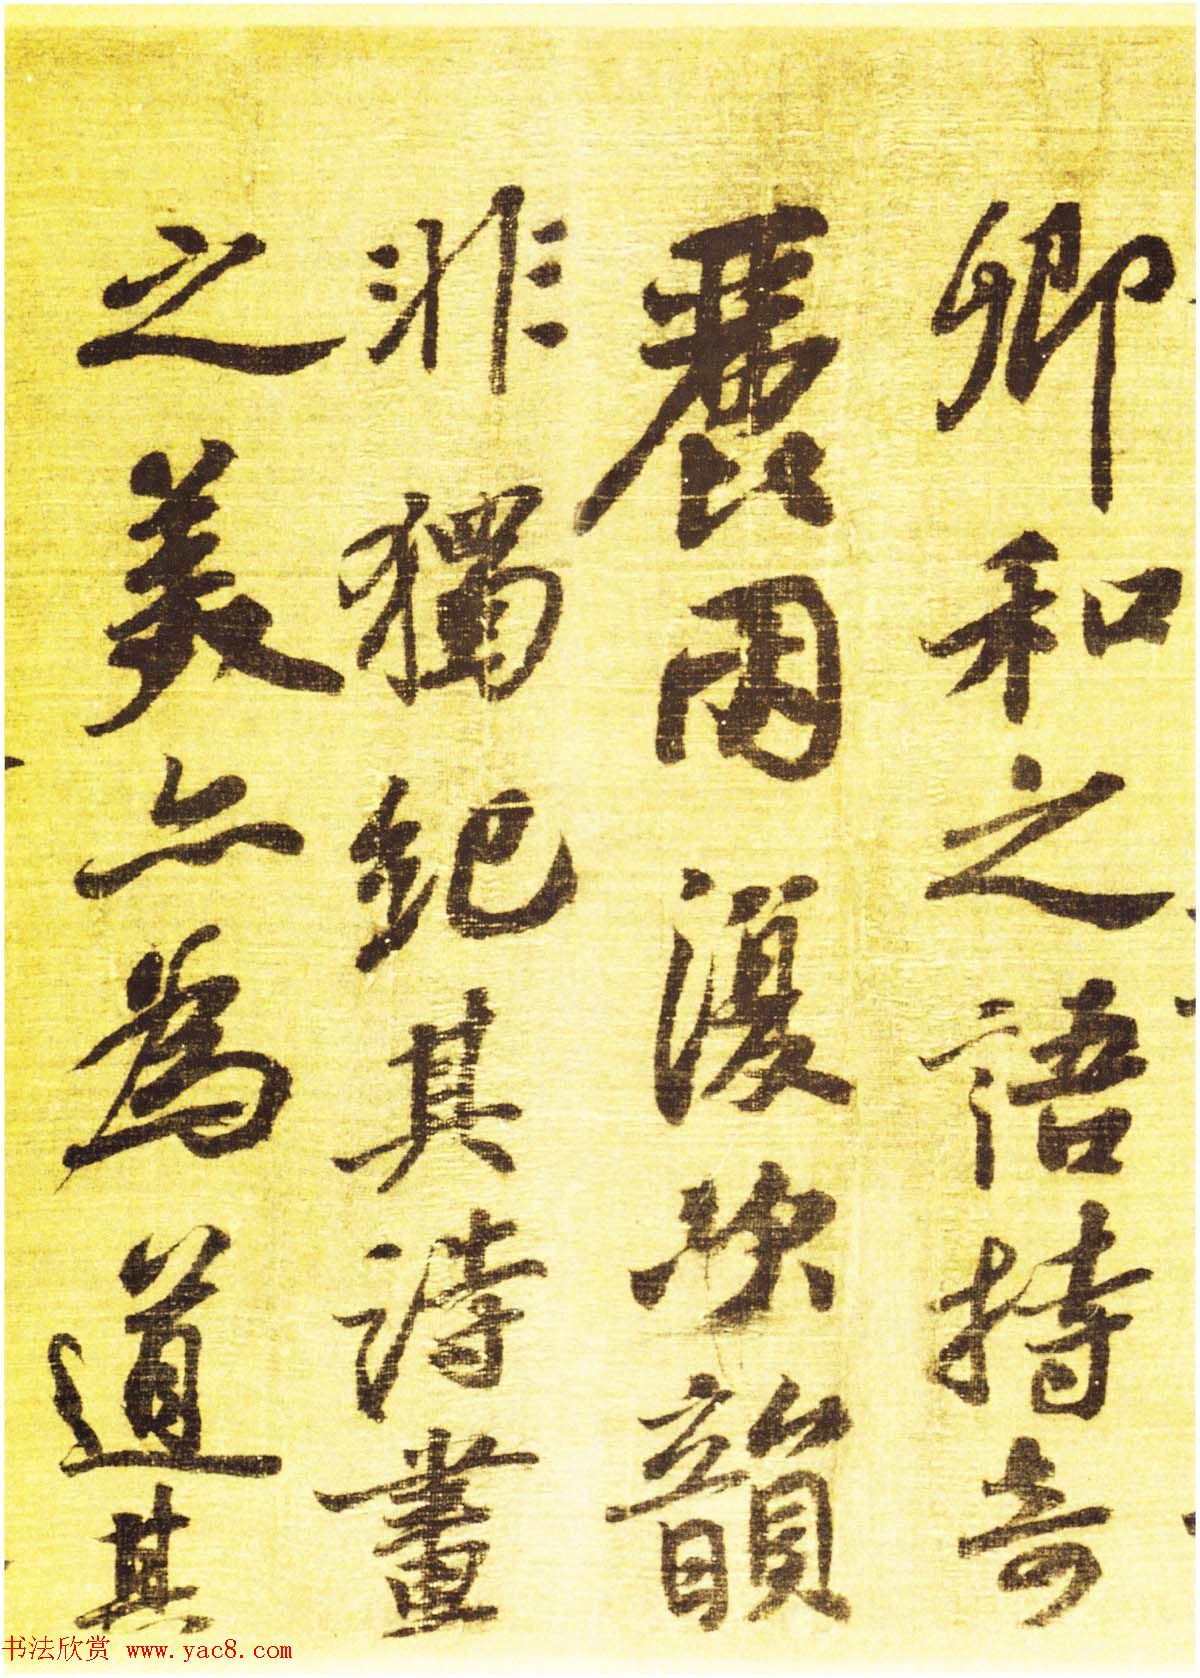 卿和之語特奇
麗因復次韻
非獨紀其詩畫
之美亦為道其
书法欣赏 www.yac8.com